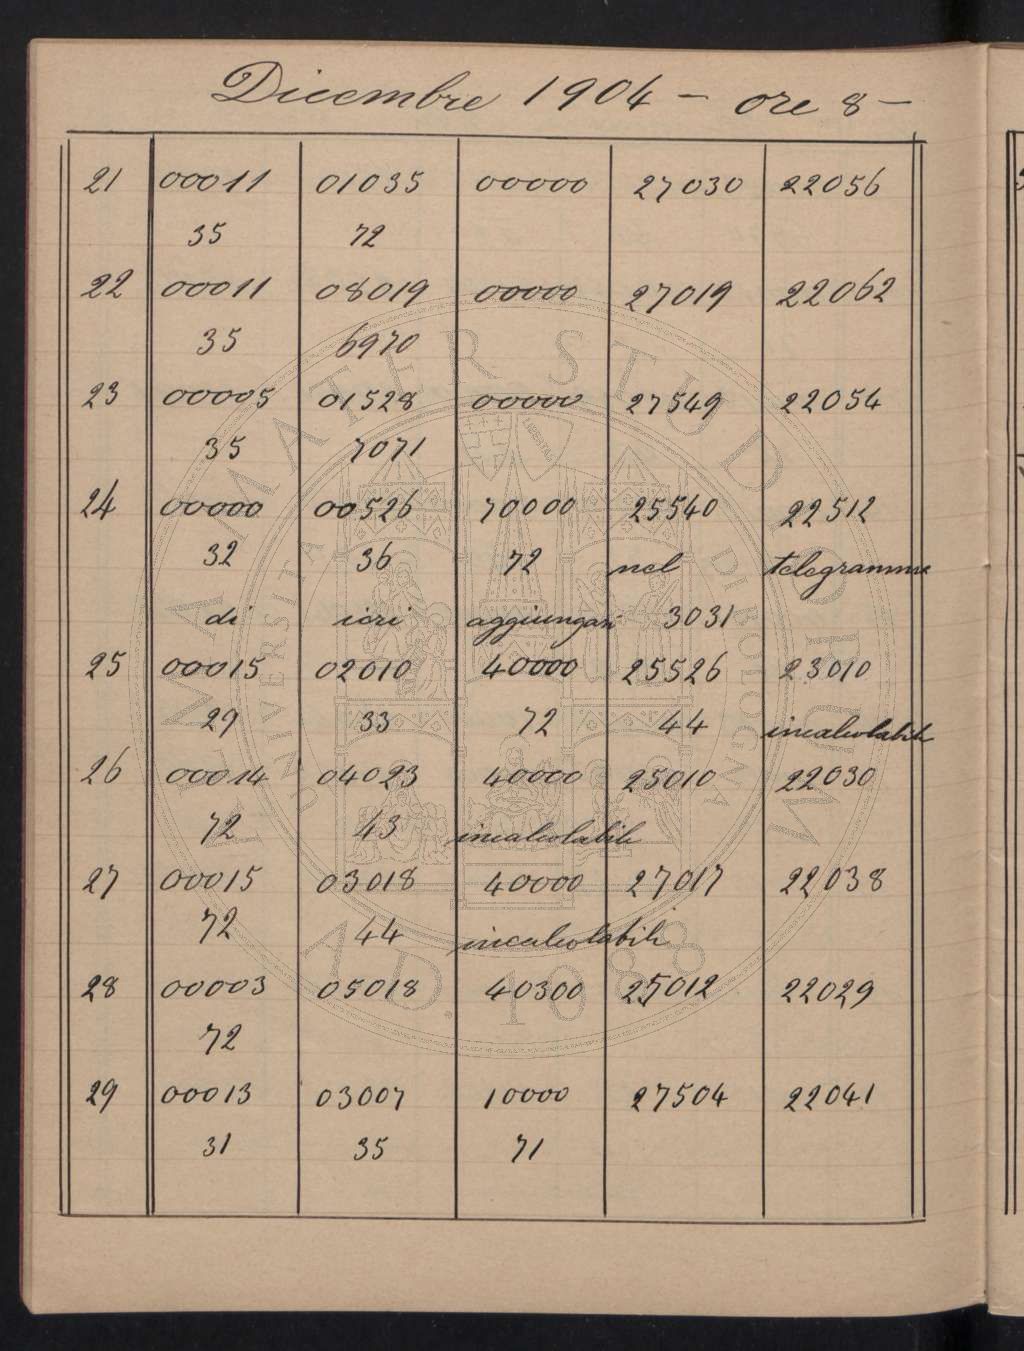 Dicembre 1904 - ore 8 -
21 00011 01035 00000 27030 22056
35 72
22 00011 08019 00000 27019 22062
35 6970
23 00005 01528 00000 27549 22054
35 7071
24 00000 00526 70000 25540 22512
32 36 72 nel telegramma
di ieri aggiungasi 3031
25 00015 02010 40000 25526 23010
29 33 72 44 incalcolabile
26 00014 04023 40000 25010 22030
72 43 incalcolabile
27 00015 03018 40000 27017 22038
72 44 incalcolabile
28 00003 05018 40300 25012 22029
72
29 00013 03007 10000 27504 22041
31 35 71
ALMA MATER STUDIORUM
UNIVERSITÀ DI BOLOGNA
A.D. 1088